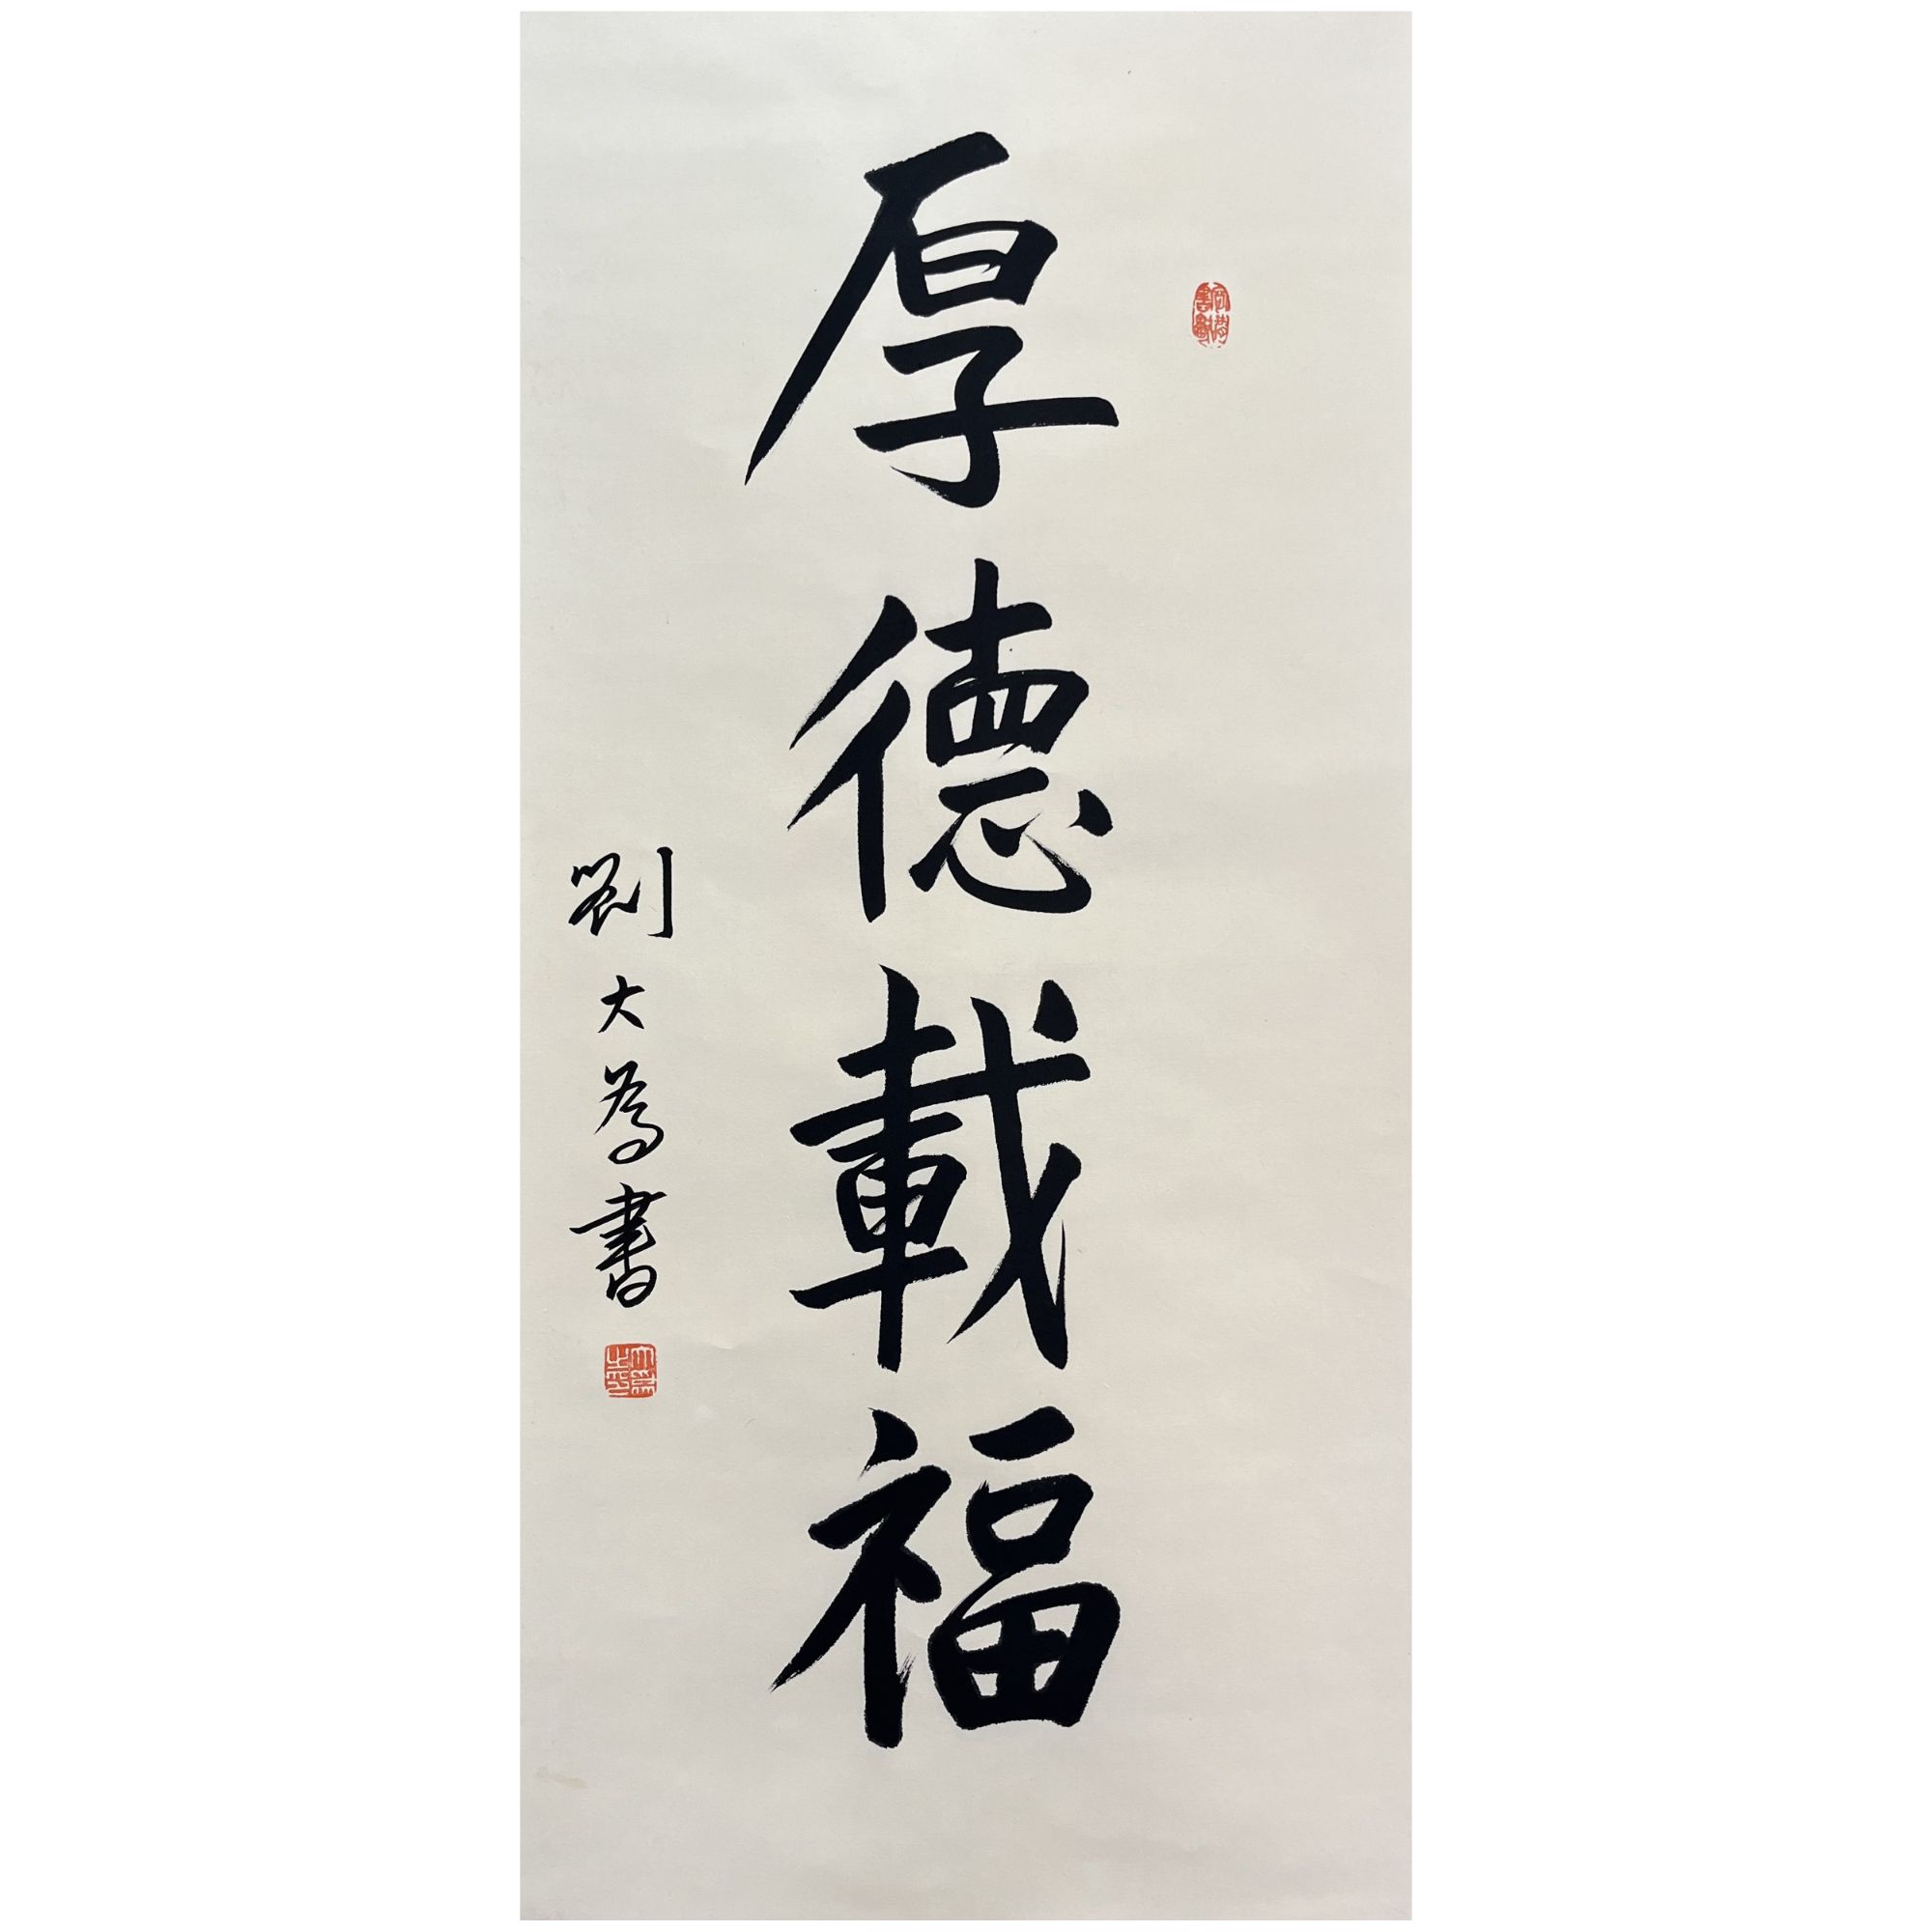 厚德載福
劉大為書